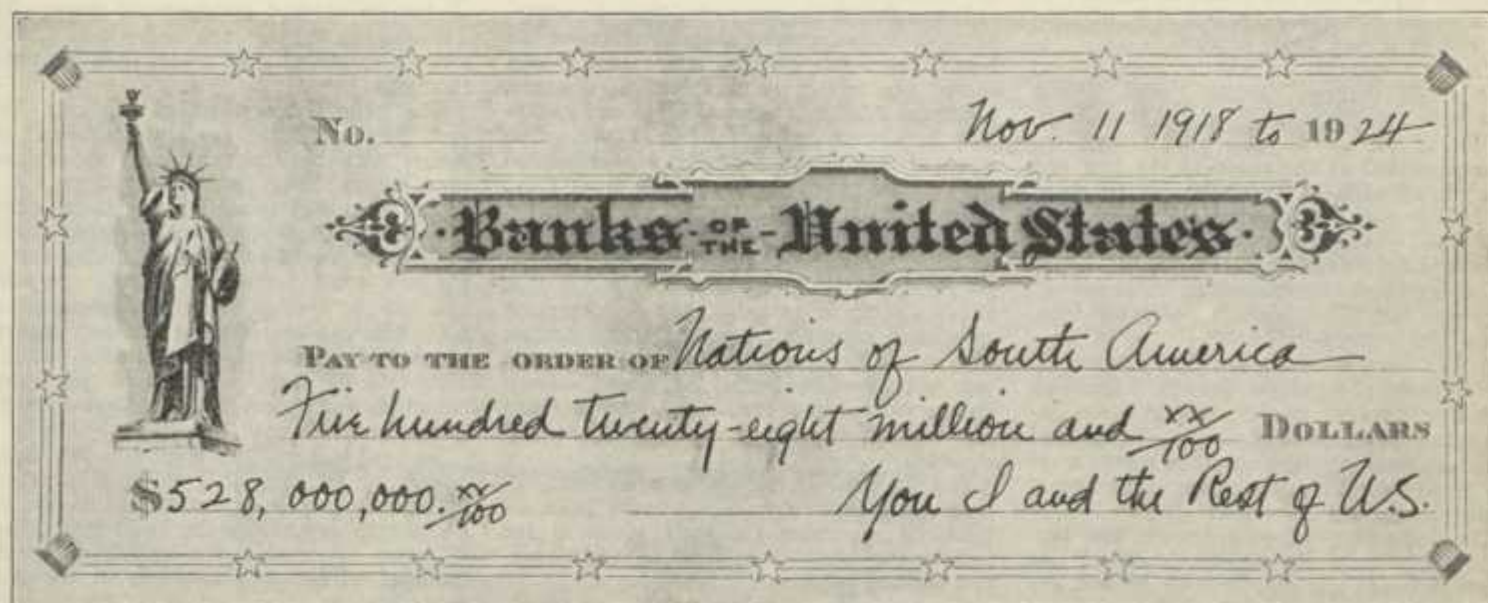 No. Nov. 11 1918 to 1924
Banks OF THE United States
PAY TO THE ORDER OF Nations of South America
Five hundred twenty-eight million and xx/100 DOLLARS
$528,000,000.xx/100 You I and the Rest of U.S.